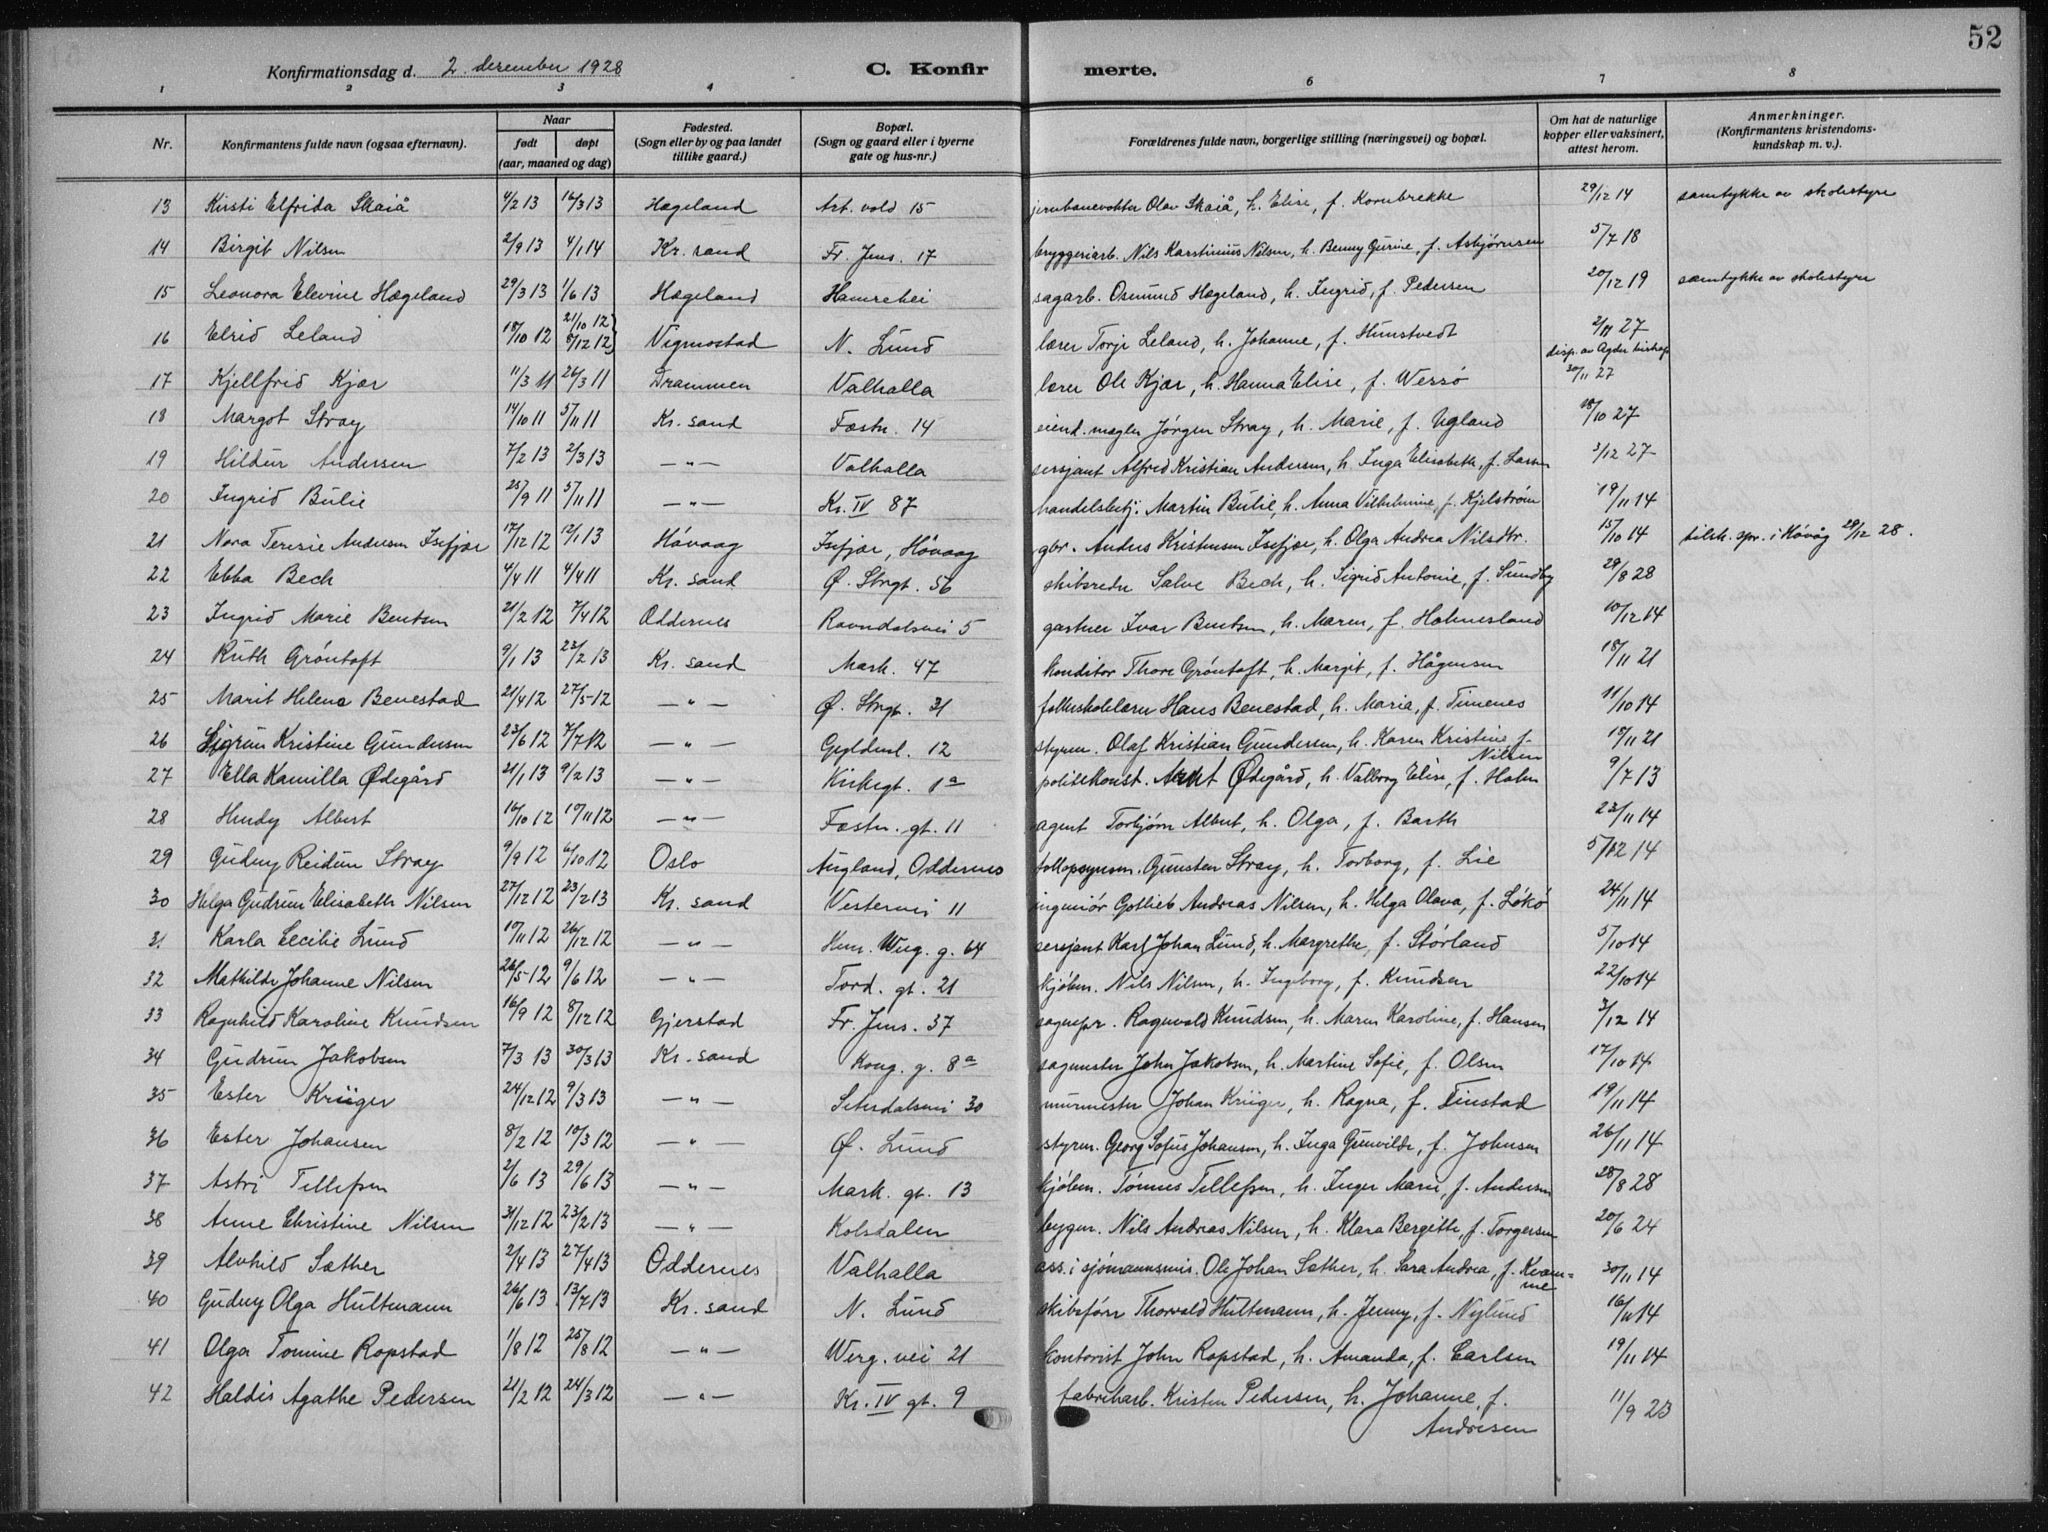 52
Konfirmationsdag d. 2. desember 1928 C. Konfirmerte.
1 2 3 4 6 7 8
Nr. Konfirmantens fulde navn (ogsaa efternavn). Naar født døpt (aar, maaned og dag) Fødested. (Sogn eller by og paa landet tillike gaard.) Bopæl. (Sogn og gaard eller i byerne gate og hus-nr.) Forældrenes fulde navn, borgerlige stilling (næringsvei) og bopæl. Om hat de naturlige kopper eller vaksinert, attest herom. Anmerkninger. (Konfirmantens kristendoms- kundskap m. v.).
13 Kirsti Elfrida Skaiå 4/2 13 16/3 13 Hægeland Art. vold 15 jernbanevokter Olav Skaiå, h. Elise, f. Kornbrekke 29/12 14 samtykke av skolestyre
14 Birgit Nilsen 2/9 13 4/1 14 Kr. sand Fr. Jens. 17 bryggeriarb. Nils Karstinius Nilsen, h. Benny Gurine, f. Asbjørnsen 5/7 18
15 Leonora Elevine Hægeland 29/3 13 1/6 13 Hægeland Hamrehei sagarb. Osmund Hægeland, h. Ingrid, f. Pedersen 20/12 19 samtykke av skolestyre
16 Elrid Leland 18/10 12 21/10 12 8/12 12} Vigmostad N. Lund lærer Torje Leland, h. Johanne, f. Hunstvedt 2/11 27
disp. av Agder biskop
17 Kjellfrid Kjær 11/3 11 26/3 11 Drammen Valhalla lærer Ole Kjær, h. Hanna Elise, f. Wessø 30/11 27
18 Margot Stray 14/10 11 5/11 11 Kr. sand Fæstn. 14 eiend. mægler Jørgen Stray, h. Marie, f. Ugland 18/10 27
19 Hildur Andersen 7/2 13 2/3 13 —"— Valhalla sersjant Alfred Kristian Andersen, h. Inga Elisabeth, f. Larsen 3/12 27
20 Ingrid Bulie 25/9 11 5/11 11 —"— Kr. IV 87 handelsbetj. Martin Bulie, h. Anna Vilhelmine, f. Kjelstrøm 19/11 14
21 Nora Teresie Andersen Isefjær 17/12 12 12/1 13 Høvaag Isefjær, Høvaag gbr. Anders Kristensen Isefjær, h. Olga Andrea Nilsdtr. 15/10 14 tilsk. spr. i Høvåg 29/12 28.
22 Ebba Bech 4/4 11 4/4 11 Kr. sand Ø. Strgt. 56 skibsreder Salve Bech, h. Sigrid Antonie, f. Sundby 29/8 28
23 Ingrid Marie Bentsen 21/2 12 7/4 12 Oddernes Ravndalsvei 5 gartner Ivar Bentsen, h. Maren, f. Holmesland 10/12 14
24 Ruth Grøntoft 9/1 13 23/2 13 Kr. sand Mark. 47 konditor Thore Grøntoft, h. Margit, f. Hågensen 18/11 21
25 Marit Helene Benestad 21/4 12 27/5 12 —"— Ø. Strgt. 31 folkeskolelærer Hans Benestad, h. Maria, f. Timenes 11/10 14
26 Sigrun Kristine Gundersen 23/6 12 7/7 12 —"— Gyldenl. 12 styrm. Olaf Kristian Gundersen, h. Karen Kristine, f. Nilsen 18/11 21
27 Ella Kamilla Ødegård 21/1 13 9/2 13 —"— Kirkegt. 1a politikonst. Arnt Ødegård, h. Valborg Elise, f. Holm 9/7 13
28 Hindy Albert 16/10 12 10/11 12 —"— Fæstn. gt. 11 agent Torbjørn Albert, h. Olga, f. Barth 23/11 14
29 Gudny Reidun Stray 9/9 12 6/10 12 Oslo Augland, Oddernes tollopsynsm. Gunsten Stray, h. Torborg, f. Lie 5/12 14
30 Helga Gudrun Elisabeth Nilsen 27/12 12 23/2 13 Kr. sand Vestervei 11 ingeniør Gotlieb Andreas Nilsen, h. Helga Olava, f. Løkø 24/11 14
31 Karla Cecilie Lund 10/11 12 26/12 12 —"— Hen. Werg. g. 64 sersjant Karl Johan Lund, h. Margrethe, f. Størland 5/10 14
32 Mathilde Johanne Nilsen 26/5 12 9/6 12 —"— Tord. gt. 21 kjøbm. Nils Nilsen, h. Ingeborg, f. Knudsen 22/10 14
33 Ragnhild Karoline Knudsen 16/9 12 8/12 12 Gjerstad Fr. Jens. 37 Ragnvald Knudsen, h. Maren Karoline, f. Hansen 3/12 14
34 Gudrun Jakobsen 7/3 13 30/3 13 Kr. sand Kong. g. 8a sagmester John Jakobsen, h. Martine Sofie, f. Olsen 17/10 14
35 Ester Krüger 24/12 12 9/3 13 —"— Setesdalsvei 30 murmester Johan Krüger, h. Ragna, f. Finstad 19/11 14
36 Ester Johansen 8/2 12 10/3 12 —"— Ø. Lund styrm. Georg Sofus Johansen, h. Inga Gunvilde, f. Johnsen 26/11 14
37 Astri Tellefsen 2/6 13 29/6 13 —"— Mark. gt. 13 kjøbm. Tønnes Tellefsen, h. Inger Marie, f. Andersen 28/8 28
38 Anne Christine Nilsen 31/12 12 23/2 13 —"— Kolsdalen bygm. Nils Andreas Nilsen, h. Klara Bergitte, f. Torgersen 20/6 24
39 Alvhild Sæther 2/4 13 27/4 13 Oddernes Valhalla ass. i sjømannsmis. Ole Johan Sæther, h. Sara Andrea, f. Kvamme 30/11 14
40 Gudny Olga Hultmann 26/6 13 13/7 13 Kr. sand N. Lund skibsfører Thorvald Hultmann, h. Jenny, f. Nylund 16/11 14
41 Olga Tomine Ropstad 1/8 12 25/8 12 —"— Werg. vei 21 kontorist John Ropstad, h. Amanda, f. Carlsen 19/11 14
42 Haldis Agathe Pedersen 21/2 12 24/3 12 —"— Kr. IV gt. 9 fabrikarb. Kristen Pedersen, h. Johanne, f. Andresen 11/9 23